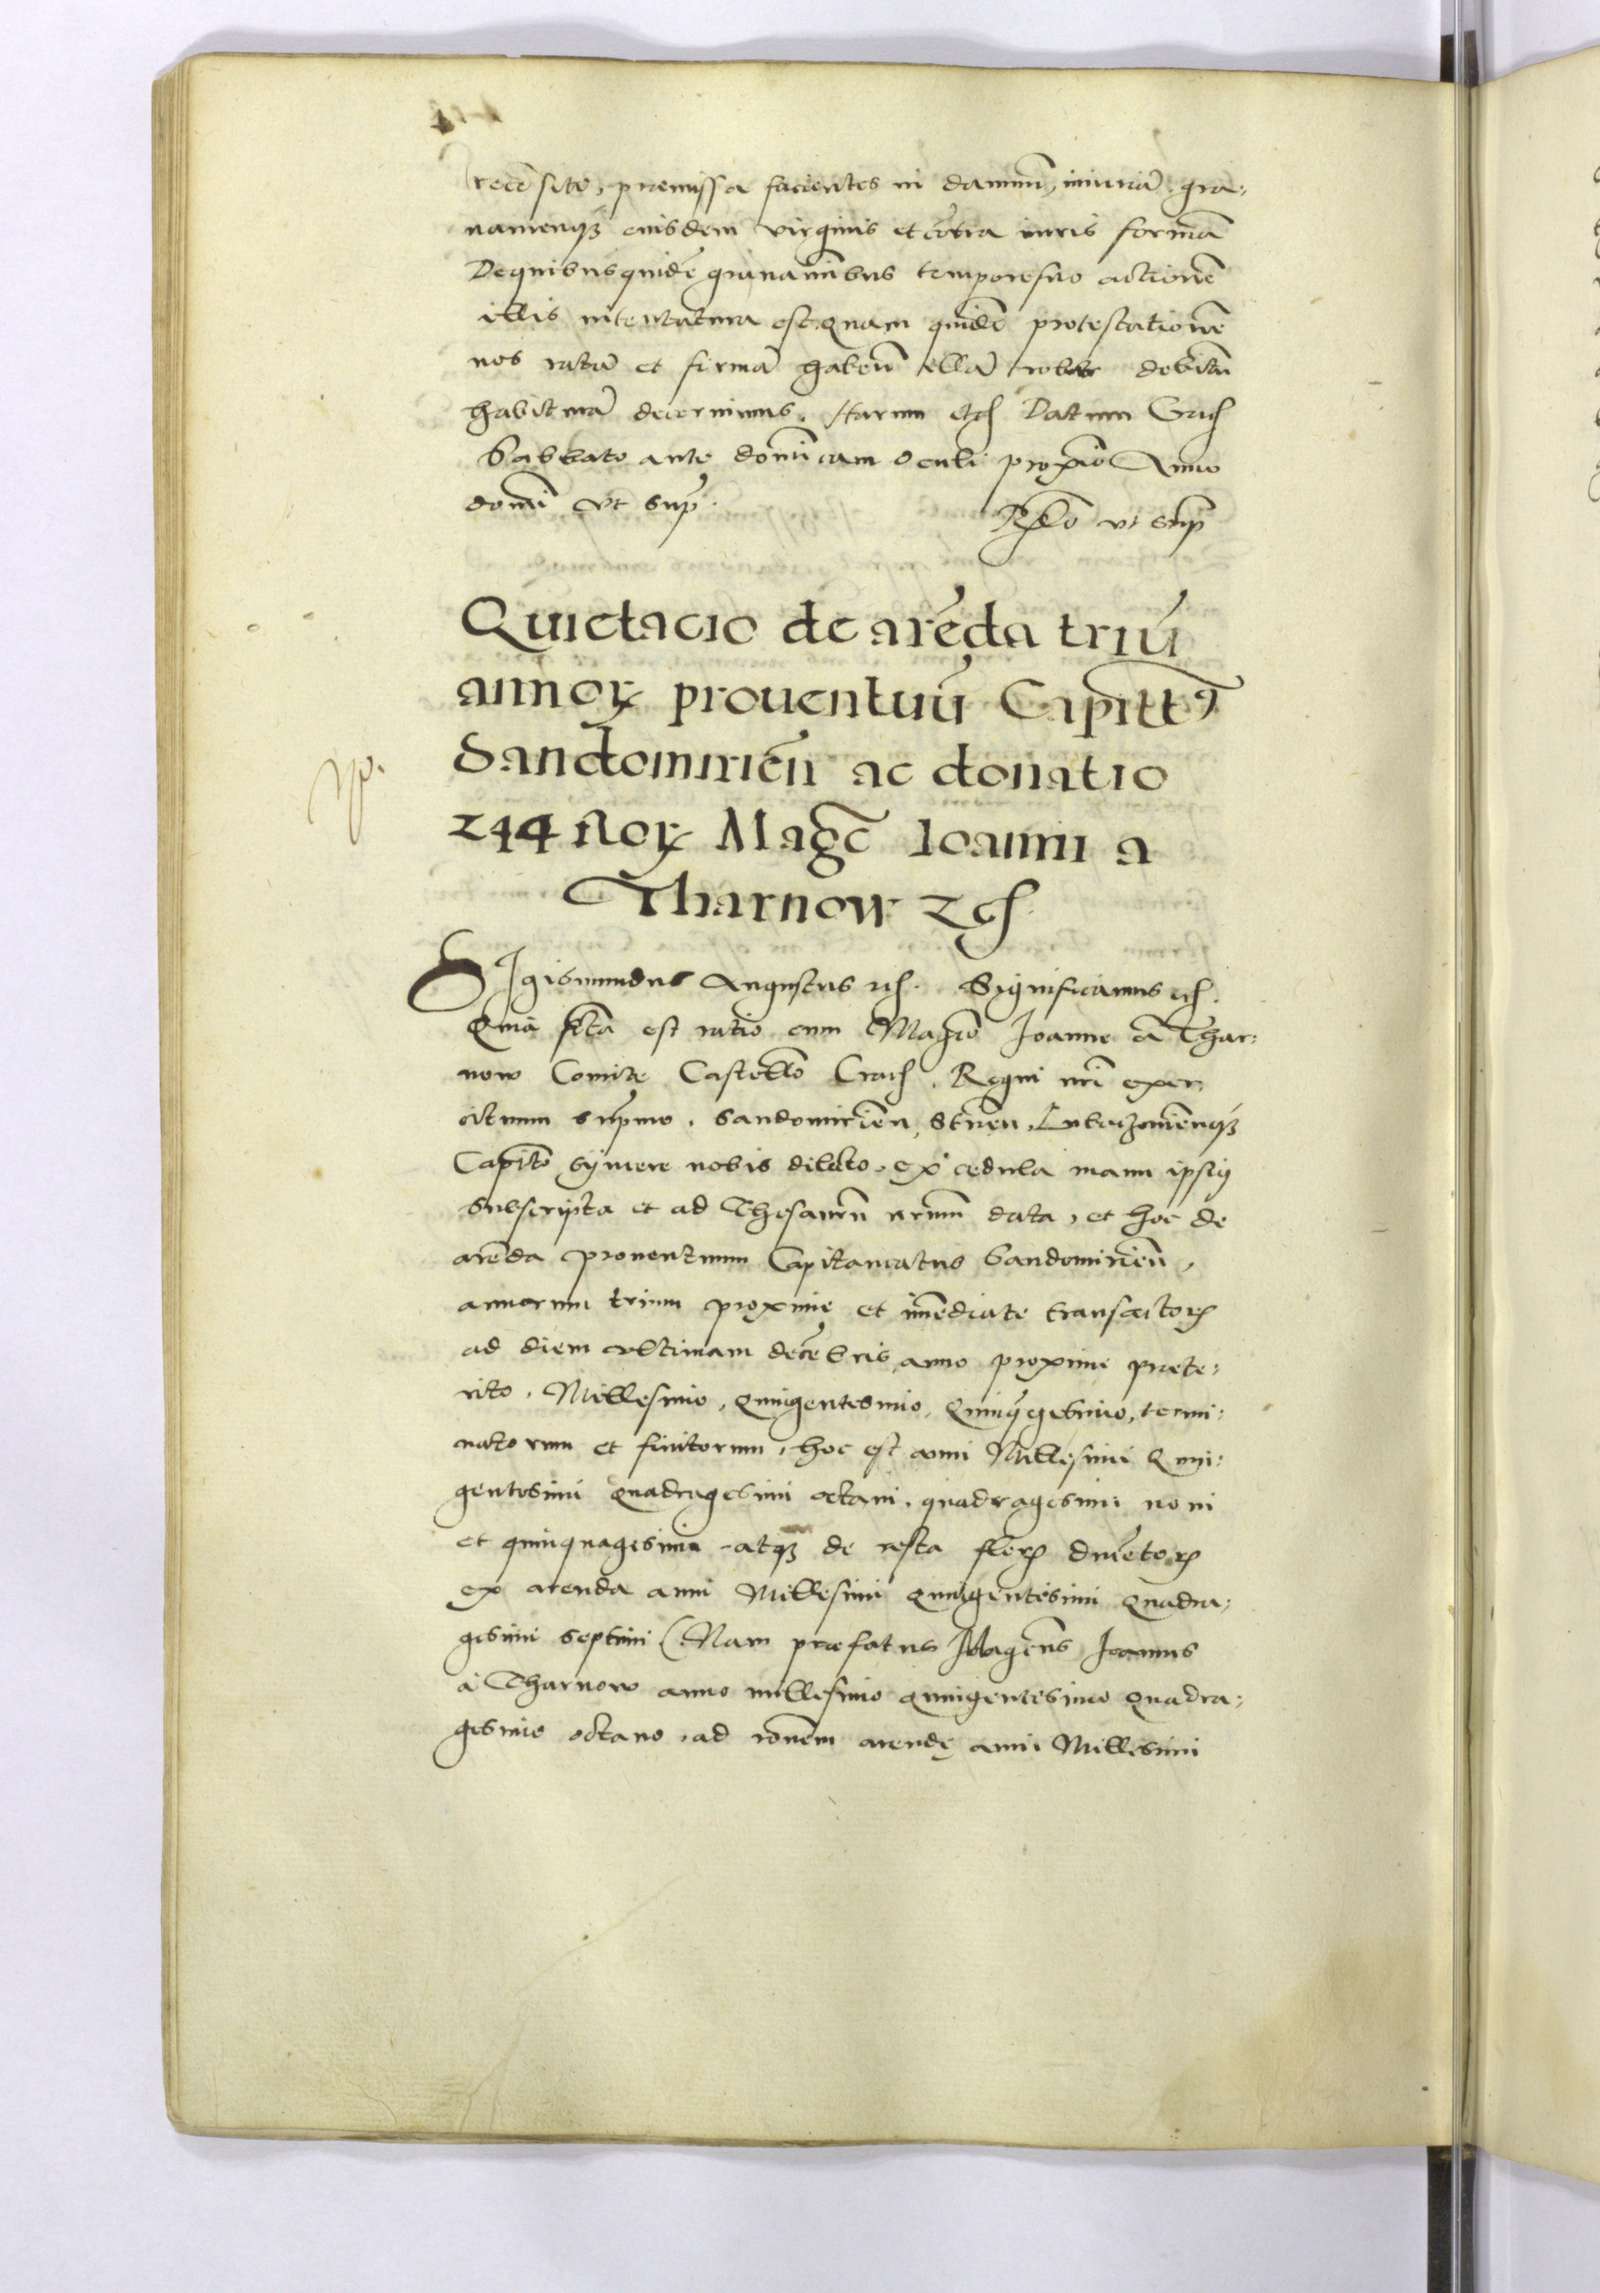 recēsito, premissa facientes in damnū, iniuriā, gra:
namenq3 eiusdem virginis et cōtra iuris formā
De quibus quidē grauaminibus tempore suo actionē
illis intentatura est. Quam quidē protestationē
nos ratā et firmā habem̄ illā robur debitū
habiturā decernimus. Harum etc̄ Datum Crac̄
Sabbato ante dominicam Oculi proximo Anno
domi vt sup̄.
Relō vt sup̄
Quietacio de arēda triū
annoꝝ prouentuū Capitt9
Sandomirieñ ac donatio
244 floꝝ Magc̄ Ioanni a
Tharnow zc̄
Sigismundus Augustus zc̄. Significamus zc̄.
Quia fcta est ratio cum Magco Joanne a Thar:
now Comite Castello Crac̄. Regni nri exer:
cituum supmo. Sandomirieñ, Streñ, Lubaczouieñq3
Capito syncere nobis dilecto. ex cedula manu ipsiꝰ
subscripta et ad Thesaurū nrum data, et hoc de
arēda prouentuum Capitaneatus Sandomirieñ,
annorum trium proxime et imēdiate transactoꝝ
ad diem vltimam decēbris anno proxime prete:
rito. Millesimo, Quingentesimo, Quinqgesimo, termi:
natorum et finitorum, hoc est anni Millesimi Quin:
gentesimi quadragesimi octaui. quadragesimi noni
et quinquagesimi atq3 de resta floꝝ ducetoꝝ
ex arenda anni Millesimi Quingentesimi Quadra:
gesimi septimi (Nam præfatus Magcus Joannes
à Tharnow anno millesimo quingentesimo quadra:
gesimo octauo, ad ronem arendę anni Millesimi